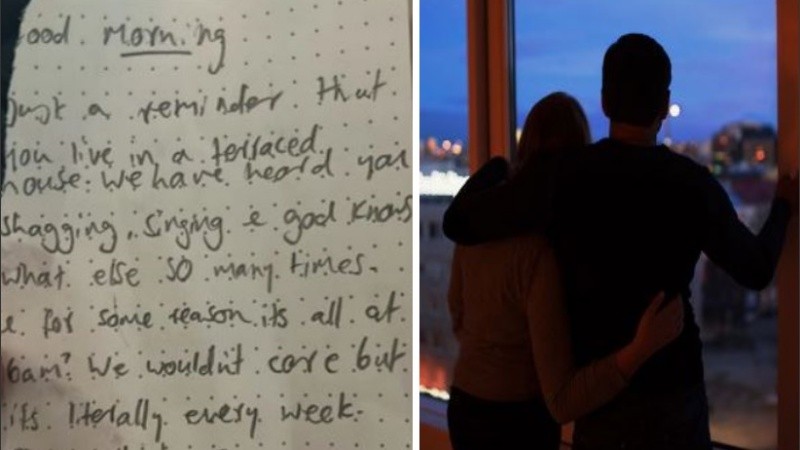 ood Morning
Just a reminder that
you live in a terraced
house. We have heard you
shagging, singing & god knows
what else so many times.
& for some reason its all at
6am? We wouldnt care but
its literally every week.